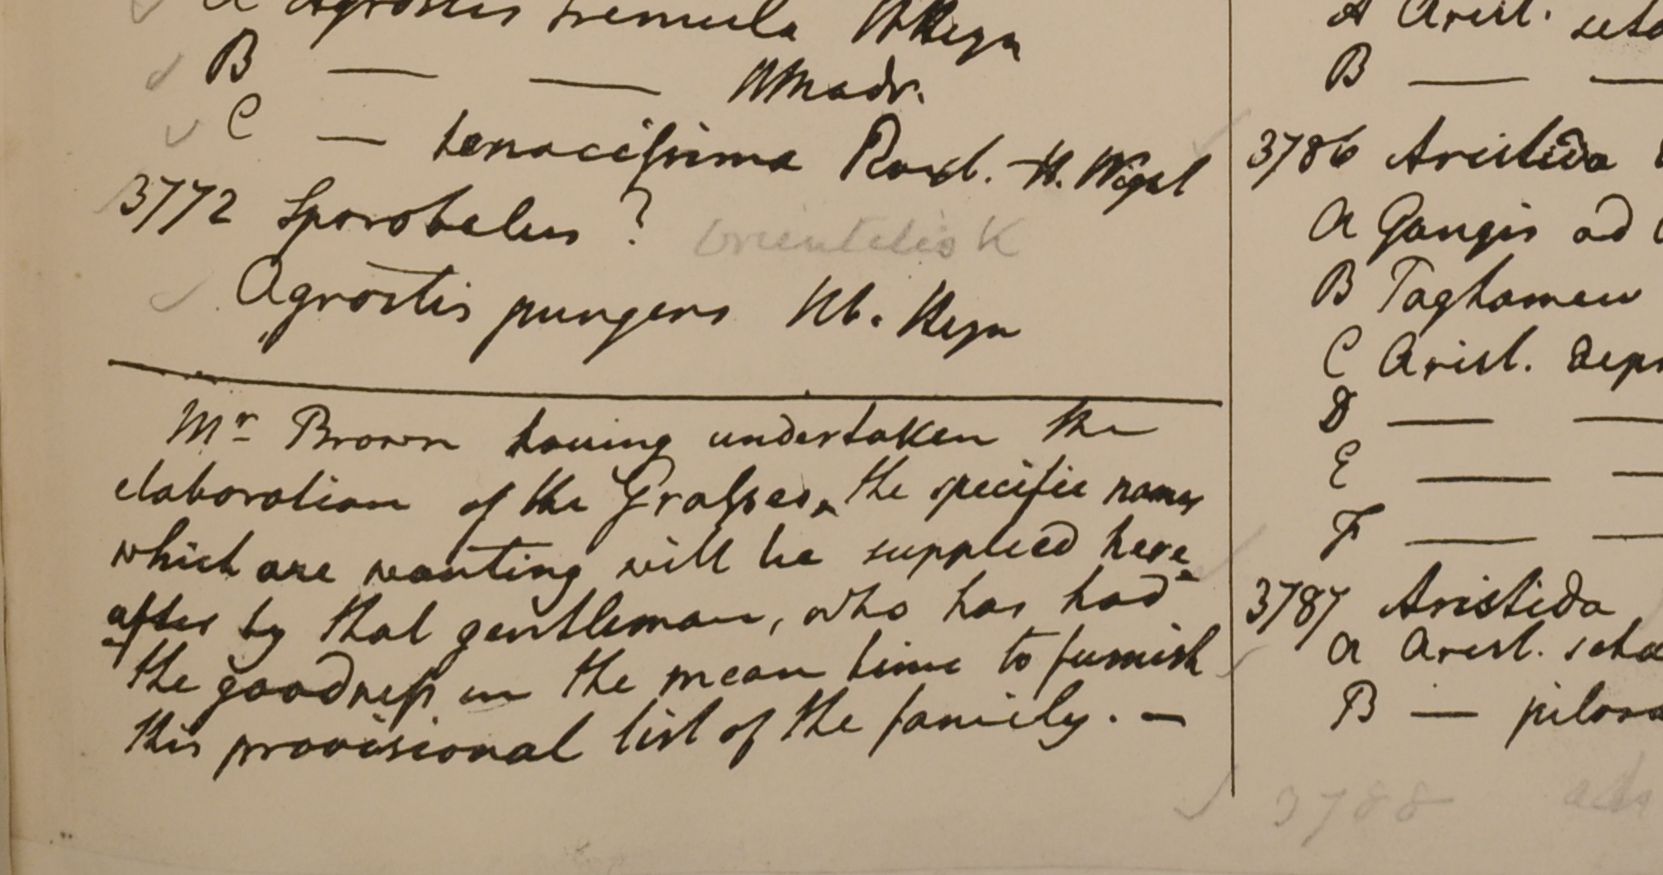 a Agrostis tremula Hb Heyn
B — — Hb Madr.
C — tenacissima Roxb. H. Wight
3772 Sporobolus ? orientalis K
Agrostis pungens Hb. Heyn
Mr Brown having undertaken the
elaboration of the Grasses, the specific names
which are wanting will be supplied here-
after by that gentleman, who has had
the goodness in the mean time to furnish
this provisional list of the family. —
A Arist. seta
B — —
3786 Aristida
a Gangis ad
B Taghamew
C Arist. depr
D — —
E — —
F — —
3787 Aristida
a Arist. seta
B — pilosa
3788